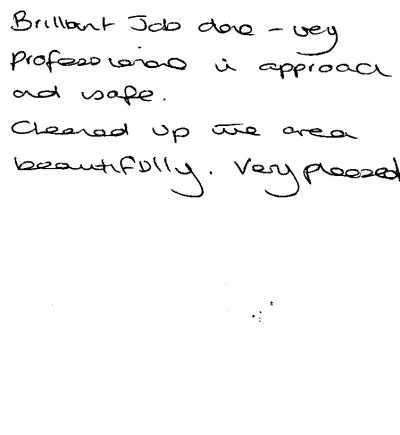 Brilliant Job done - very
professional in approach
and safe.
Cleaned up the area
beautifully. Very pleased